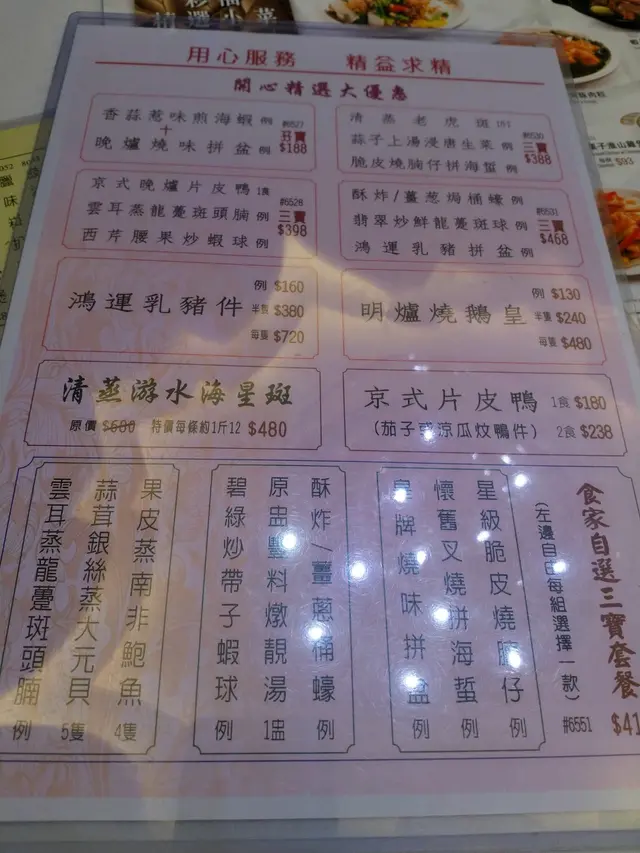 用心服務　精益求精
開心精選大優惠
香蒜惹味煎海蝦 例
+
晚爐燒味拼盆 例
#6527
孖寶
$188
清蒸老虎斑
蒜子上湯浸唐生菜 例
脆皮燒腩仔拼海蜇 例
#6530
三寶
$388
京式晚爐片皮鴨 1食
雲耳蒸龍躉斑頭腩 例
西芹腰果炒蝦球 例
#6528
三寶
$398
酥炸/薑葱焗桶蠔 例
翡翠炒鮮龍躉斑球 例
鴻運乳豬拼盆 例
#6531
三寶
$468
鴻運乳豬件
例 $160
半隻 $380
每隻 $720
明爐燒鵝皇
例 $130
半隻 $240
每隻 $480
清蒸游水海星斑
原價 $580 特價每條約1斤12 $480
京式片皮鴨 1食 $180
(茄子或涼瓜炆鴨件) 2食 $238
食家自選三寶套餐 $41
(左邊自由每組選擇一款) #6551
星級脆皮燒腩仔 例
懷舊叉燒拼海蜇 例
皇牌燒味拼盆 例
酥炸/薑葱桶蠔 例
原盅豐料燉靚湯 1盅
碧綠炒帶子蝦球 例
果皮蒸南非鮑魚 4隻
蒜茸銀絲蒸大元貝 5隻
雲耳蒸龍躉斑頭腩 例